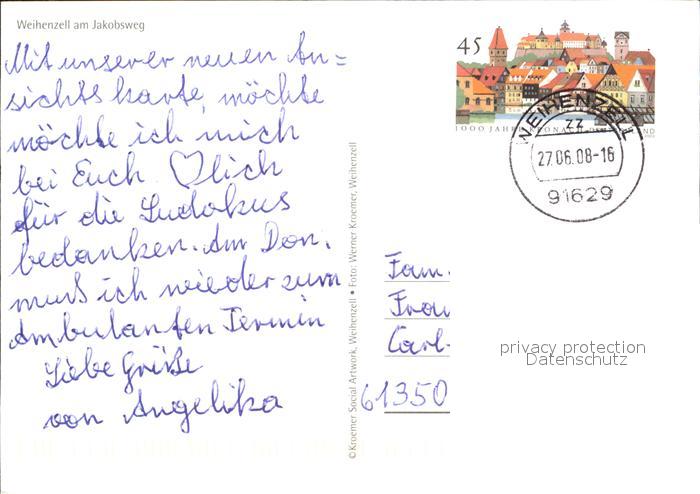 Weihenzell am Jakobsweg
Mit unserer neuen An=
sichtskarte, möchte
möchte ich mich
bei Euch ♡lich
für die Sudokus
bedanken. Am Don.
muß ich wieder zum
Ambulanten Termin
Liebe Grüße
von Angelika
© Kroemer Social Artwork, Weihenzell • Foto: Werner Kroemer, Weihenzell
45
1000 JAHRE KRONACH
WEIHENZELL
ZZ
27.06.08-16
91629
Fam.
Frau
Carl-
61350
privacy protection
Datenschutz